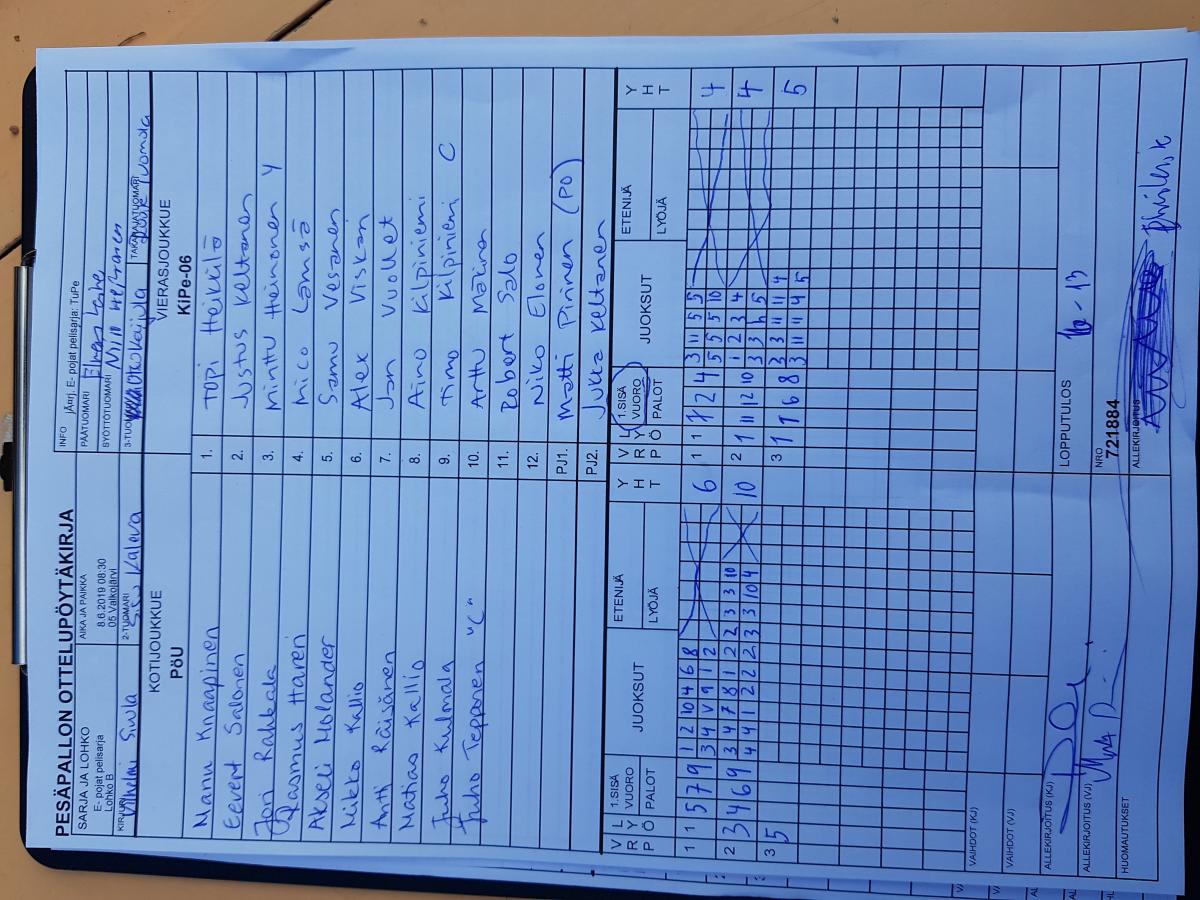 PESÄPALLON OTTELUPÖYTÄKIRJA
SARJA JA LOHKO
E- pojat pelisarja
Lohko B
AIKA JA PAIKKA
8.6.2019 08:30
05 Valkojärvi
INFO
jÄrrj. E- pojat pelisarja: TuPe
PÄÄTUOMARI
SYÖTTÖTUOMARI
KIRJURI
Vilhelmi Suula
2-TUOMARI
Kaleva
3-TUOMARI
TAKARAJATUOMARI
KOTIJOUKKUE
PöU
VIERASJOUKKUE
KiPe-06
Manu Knaapinen
1.
Topi Heikkilä
Eevert Salonen
2.
Justus Keltanen
Joni Rahkala
3.
Minttu Heinonen Y
Rasmus Haveri
4.
Mico Lämsä
Akseli Molander
5.
Samu Vesanen
Mikko Kallio
6.
Alex Viskari
Antti Räisänen
7.
Jan Vuollet
Matias Kallio
8.
Aino Kilpiniemi
Juho Kulmala
9.
Timo Kilpiniemi C
Juho Tepponen "C"
10.
Arttu Mäinen
11.
Robert Salo
12.
Niko Elonen
PJ1.
Matti Pirinen (PO)
PJ2.
Jukka Keltanen
V R
L Y Ö
1.SISÄ VUORO
PALOT
JUOKSUT
ETENIJÄ
LYÖJÄ
Y H T
V R
L Y Ö
1.SISÄ VUORO
PALOT
JUOKSUT
ETENIJÄ
LYÖJÄ
Y H T
1 1 5 7 9
1 2 10 4 6 8
3 4 V 9 1 2
6
1 1 7 2 4
3 11 5 5
5 5 5 10
4
2 3 4 6 9
3 4 7 8 1 2 2 3 3 10
4 4 1 2 2 2 3 3 10 4
10
2 1 11 12 10
1 2 3 4
3 3 4 5
4
3 5
3 1 1 6 8
3 3 11 11 4
3 11 11 4 5
5
VAIHDOT (KJ)
VAIHDOT (VJ)
ALLEKIRJOITUS (KJ)
LOPPUTULOS
16 - 13
ALLEKIRJOITUS (VJ)
NRO
721884
HUOMAUTUKSET
ALLEKIRJOITUS